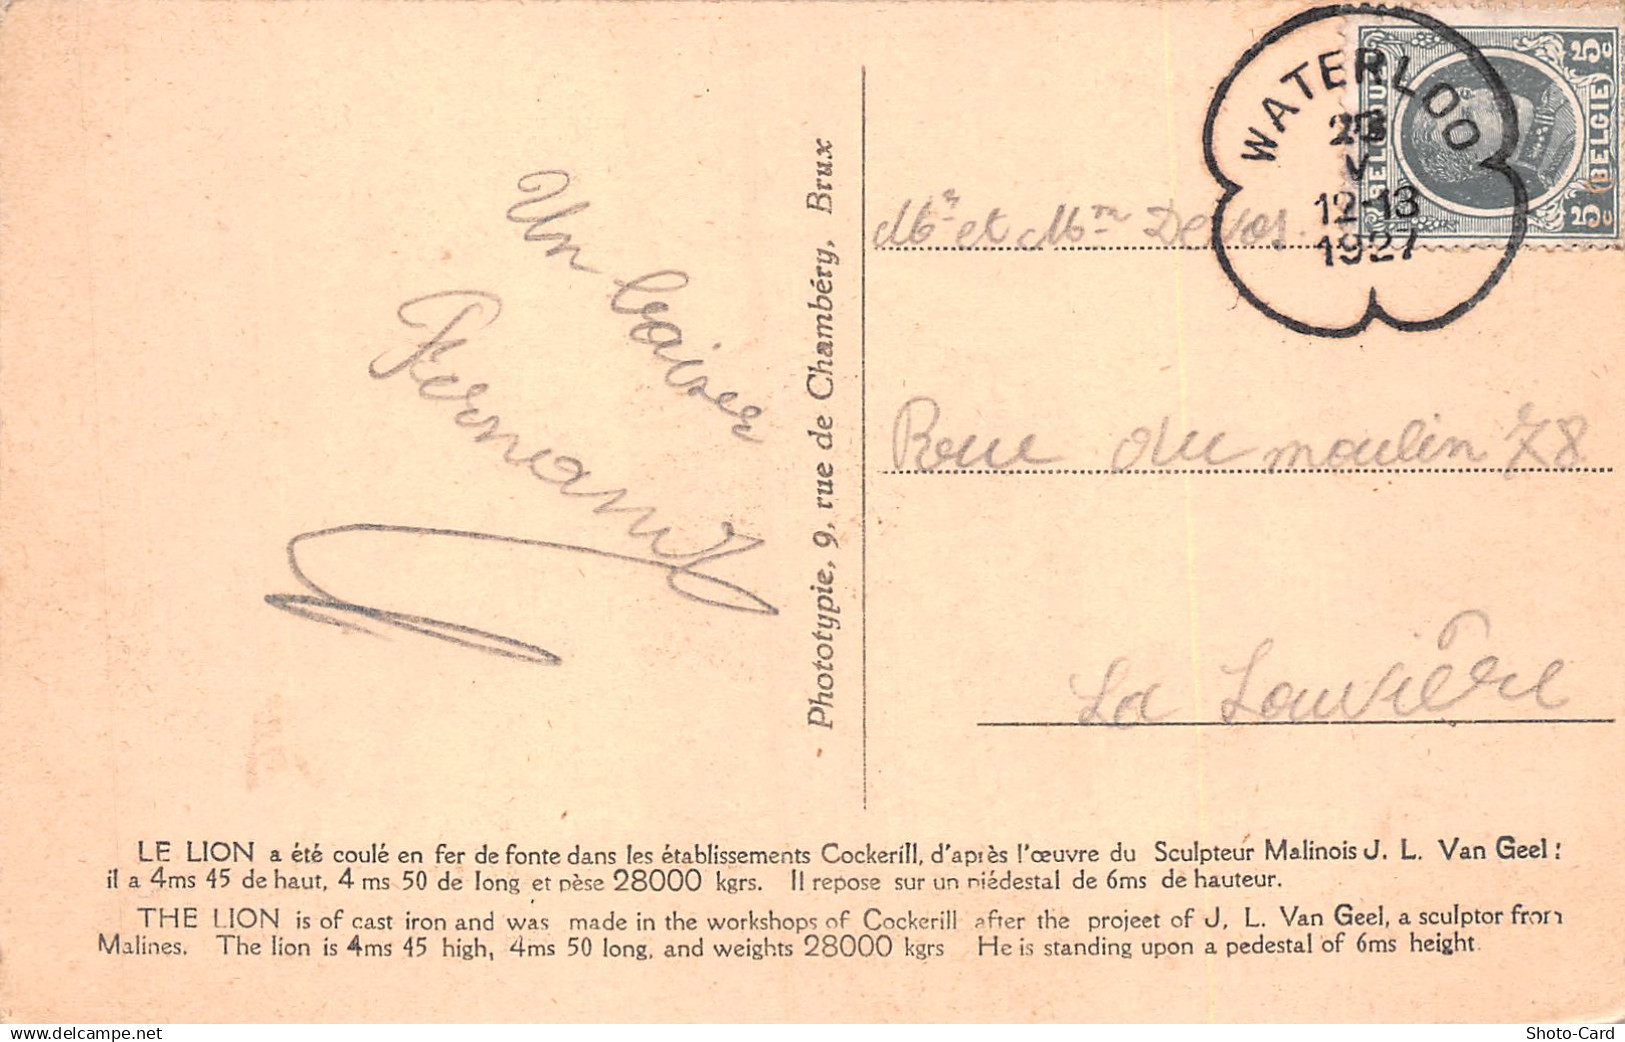 Un baiser
Fernand
Phototypie, 9, rue de Chambéry, Brux
WATERLOO
V
12-13
1927
BELGIQUE
BELGIE
5c
5c
Mr et Mme Devos
Rue du moulin 78
La Louvière
LE LION a été coulé en fer de fonte dans les établissements Cockerill, d'après l'œuvre du Sculpteur Malinois J. L. Van Geel:
il a 4ms 45 de haut, 4 ms 50 de long et pèse 28000 kgrs. Il repose sur un piédestal de 6ms de hauteur.
THE LION is of cast iron and was made in the workshops of Cockerill after the projeet of J. L. Van Geel, a sculptor from
Malines. The lion is 4ms 45 high, 4ms 50 long, and weights 28000 kgrs He is standing upon a pedestal of 6ms height.
www.delcampe.net
Shoto-Card